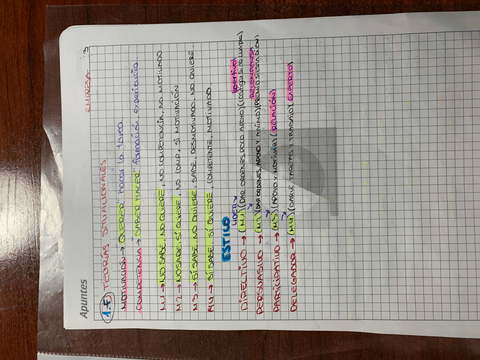 Apuntes
EMPRESA 3
1.5) TEORIAS SITUACIONALES
MOTIVACIÓN → QUERER hacer la tarea
COMPETENCIA → SABER HACER formación, experiencia
M1 → NO SABE, NO QUIERE, NO COMPETENCIA, NO MOTIVADO
M2 → NO SABE, SÍ QUIERE, NO COMP. SÍ MOTIVACIÓN
M3 → SÍ SABE, NO QUIERE, SABE, DESMOTIVADO, NO QUIERE
M4 → SÍ SABE, SÍ QUIERE, COMPETENTE, MOTIVADO
ESTILO
DIRECTIVO → (M1) (DAR ORDENES, POCO APOYO)
PERSUASIVO → (M2) (DAR ORDENES, APOYO Y ANIMO)
PARTICIPATIVO → (M3) (APOYO Y MOTIVAR) (RELACIÓN)
DELEGADOR → (M4) (DARLE TAREAS Y TRABAJO) (EXPERTO)